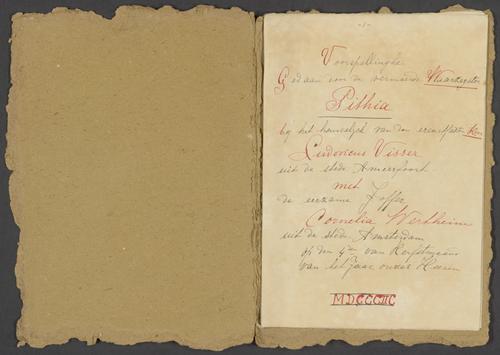 - 1 -
Voorspellinghe
Gedaan van de vermaarde Waarzegster
Pithia
bij het houwelyck van den
Ludovicus Visser
uit de stede Amersfoort
met
de eerzame Joffer
Cornelia Wertheim
uit de stede Amsterdam
op den 4den van Herfstmaand
van het Jaar onzes Heeren
MDCCCIIC